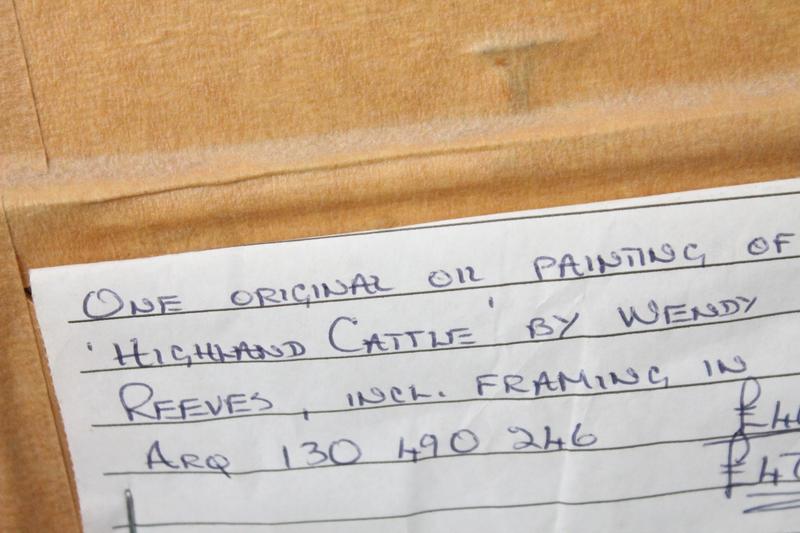 ONE ORIGINAL OIL PAINTING OF
'HIGHLAND CATTLE' BY WENDY
REEVES, INCL. FRAMING IN
ARQ 130 490 246